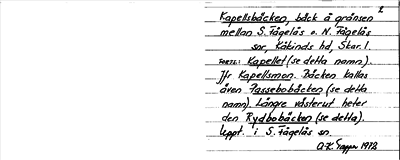 2
Kapellsbäcken, bäck å gränsen
mellan S. Fågelås o. N. Fågelås
snr, Kåkinds hd, Skar. l.
FORTS.: Kapellet (se detta namn).
Jfr Kapellsmon. Bäcken kallas
även Passebobäcken (se detta
namn). Längre västerut heter
den Rydbobäcken (se detta).
Uppt. i S. Fågelås sn.
1978